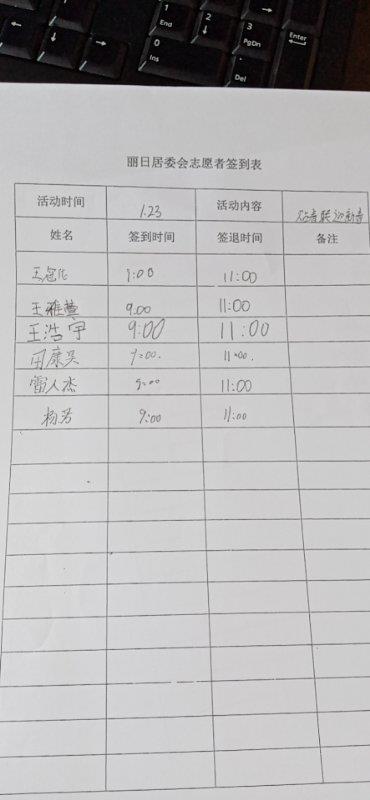 1
End
2
↓
3
PgDn
Enter
0
Ins
.
Del
丽日居委会志愿者签到表
活动时间 1.23 活动内容 迎新春
姓名 签到时间 签退时间 备注
王 9:00 11:00
王雅萱 9.00 11:00
王浩宇 9:00 11:00
田康昊 9:00. 11:00.
雷人杰 9:00 11:00
杨芳 9:00 11:00